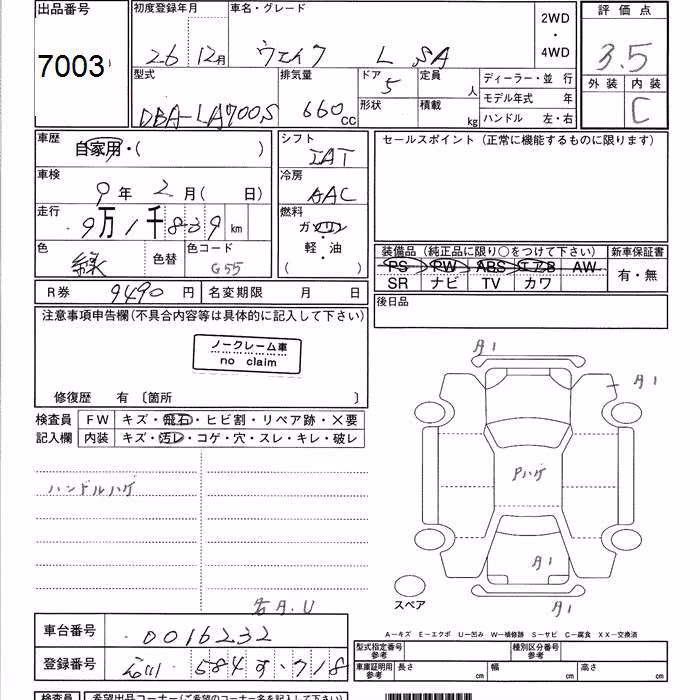 出品番号
7003
初度登録年月
26 12月
車名・グレード
ウェイク L SA
2WD
・
4WD
評価点
3.5
外装 内装
C
型式
DBA-LA700S
排気量
660cc
ドア
5
形状
定員
人
積載
kg
ディーラー・並 行
モデル年式 年
ハンドル 左・右
車歴
自家用・( )
車検
9年 2月( 日)
走行
9万1千839km
色
緑
色替
色コード
G55
シフト
IAT
冷房
AAC
燃料
ガソリン
軽・油
( )
セールスポイント（正常に機能するものに限ります）
装備品（純正品に限り○をつけて下さい）
PS PW ABS エアB AW
SR ナビ TV カワ
新車保証書
有・無
R券 9490円
名変期限 月 日
後日品
注意事項申告欄(不具合内容等は具体的に記入して下さい)
ノークレーム車
no claim
修復歴 有 〔箇所 〕
検査員
記入欄
FW キズ・飛石・ヒビ割・リペア跡・X要
内装 キズ・汚レ・コゲ・穴・スレ・キレ・破レ
ハンドルハゲ
A1
A1
Pハゲ
A1
A1
スペア
右A.U
A－キズ E－エクボ U－凹み W－補修跡 S－サビ C－腐食 XX－交換済
車台番号
0016232
登録番号
石川 584 す 718
型式指定番号
参考
種別区分番号
参考
車庫証明用
参考
長さ cm
幅 cm
高さ cm
検査員
希望出品コーナー(ご希望のコーナー名を記入して下さい)